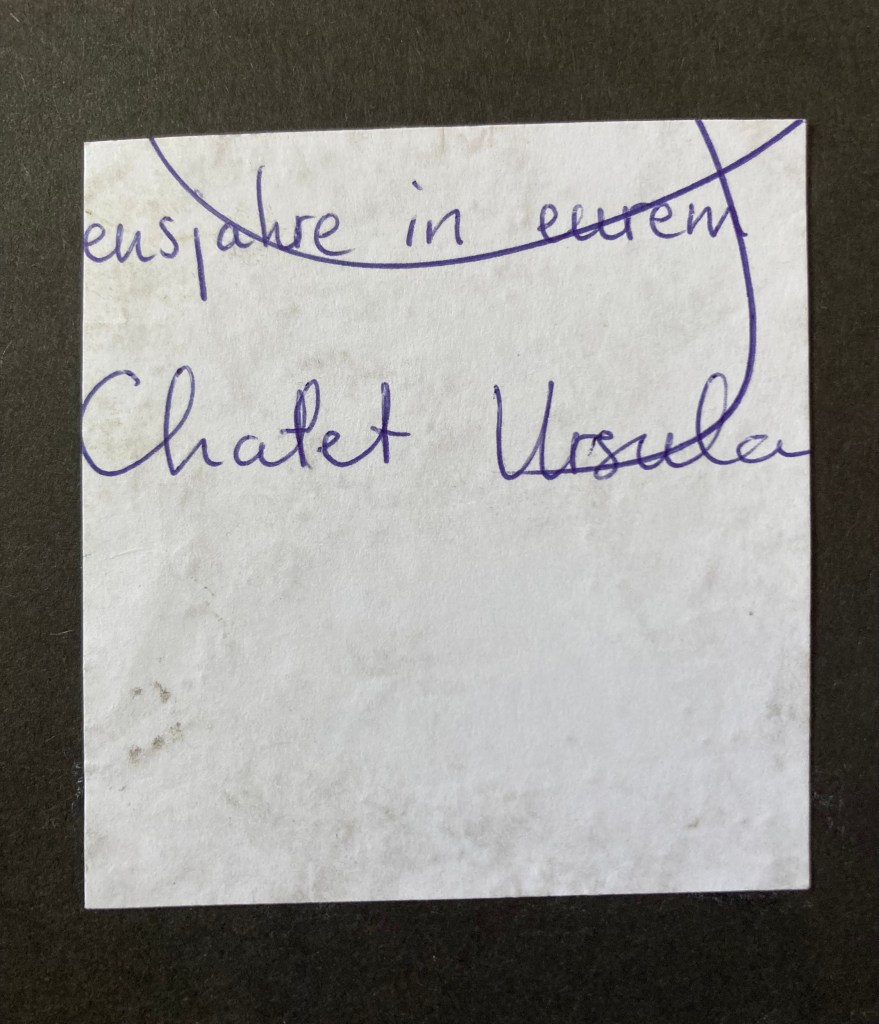 ensjahre in eurem
Chalet Ursula